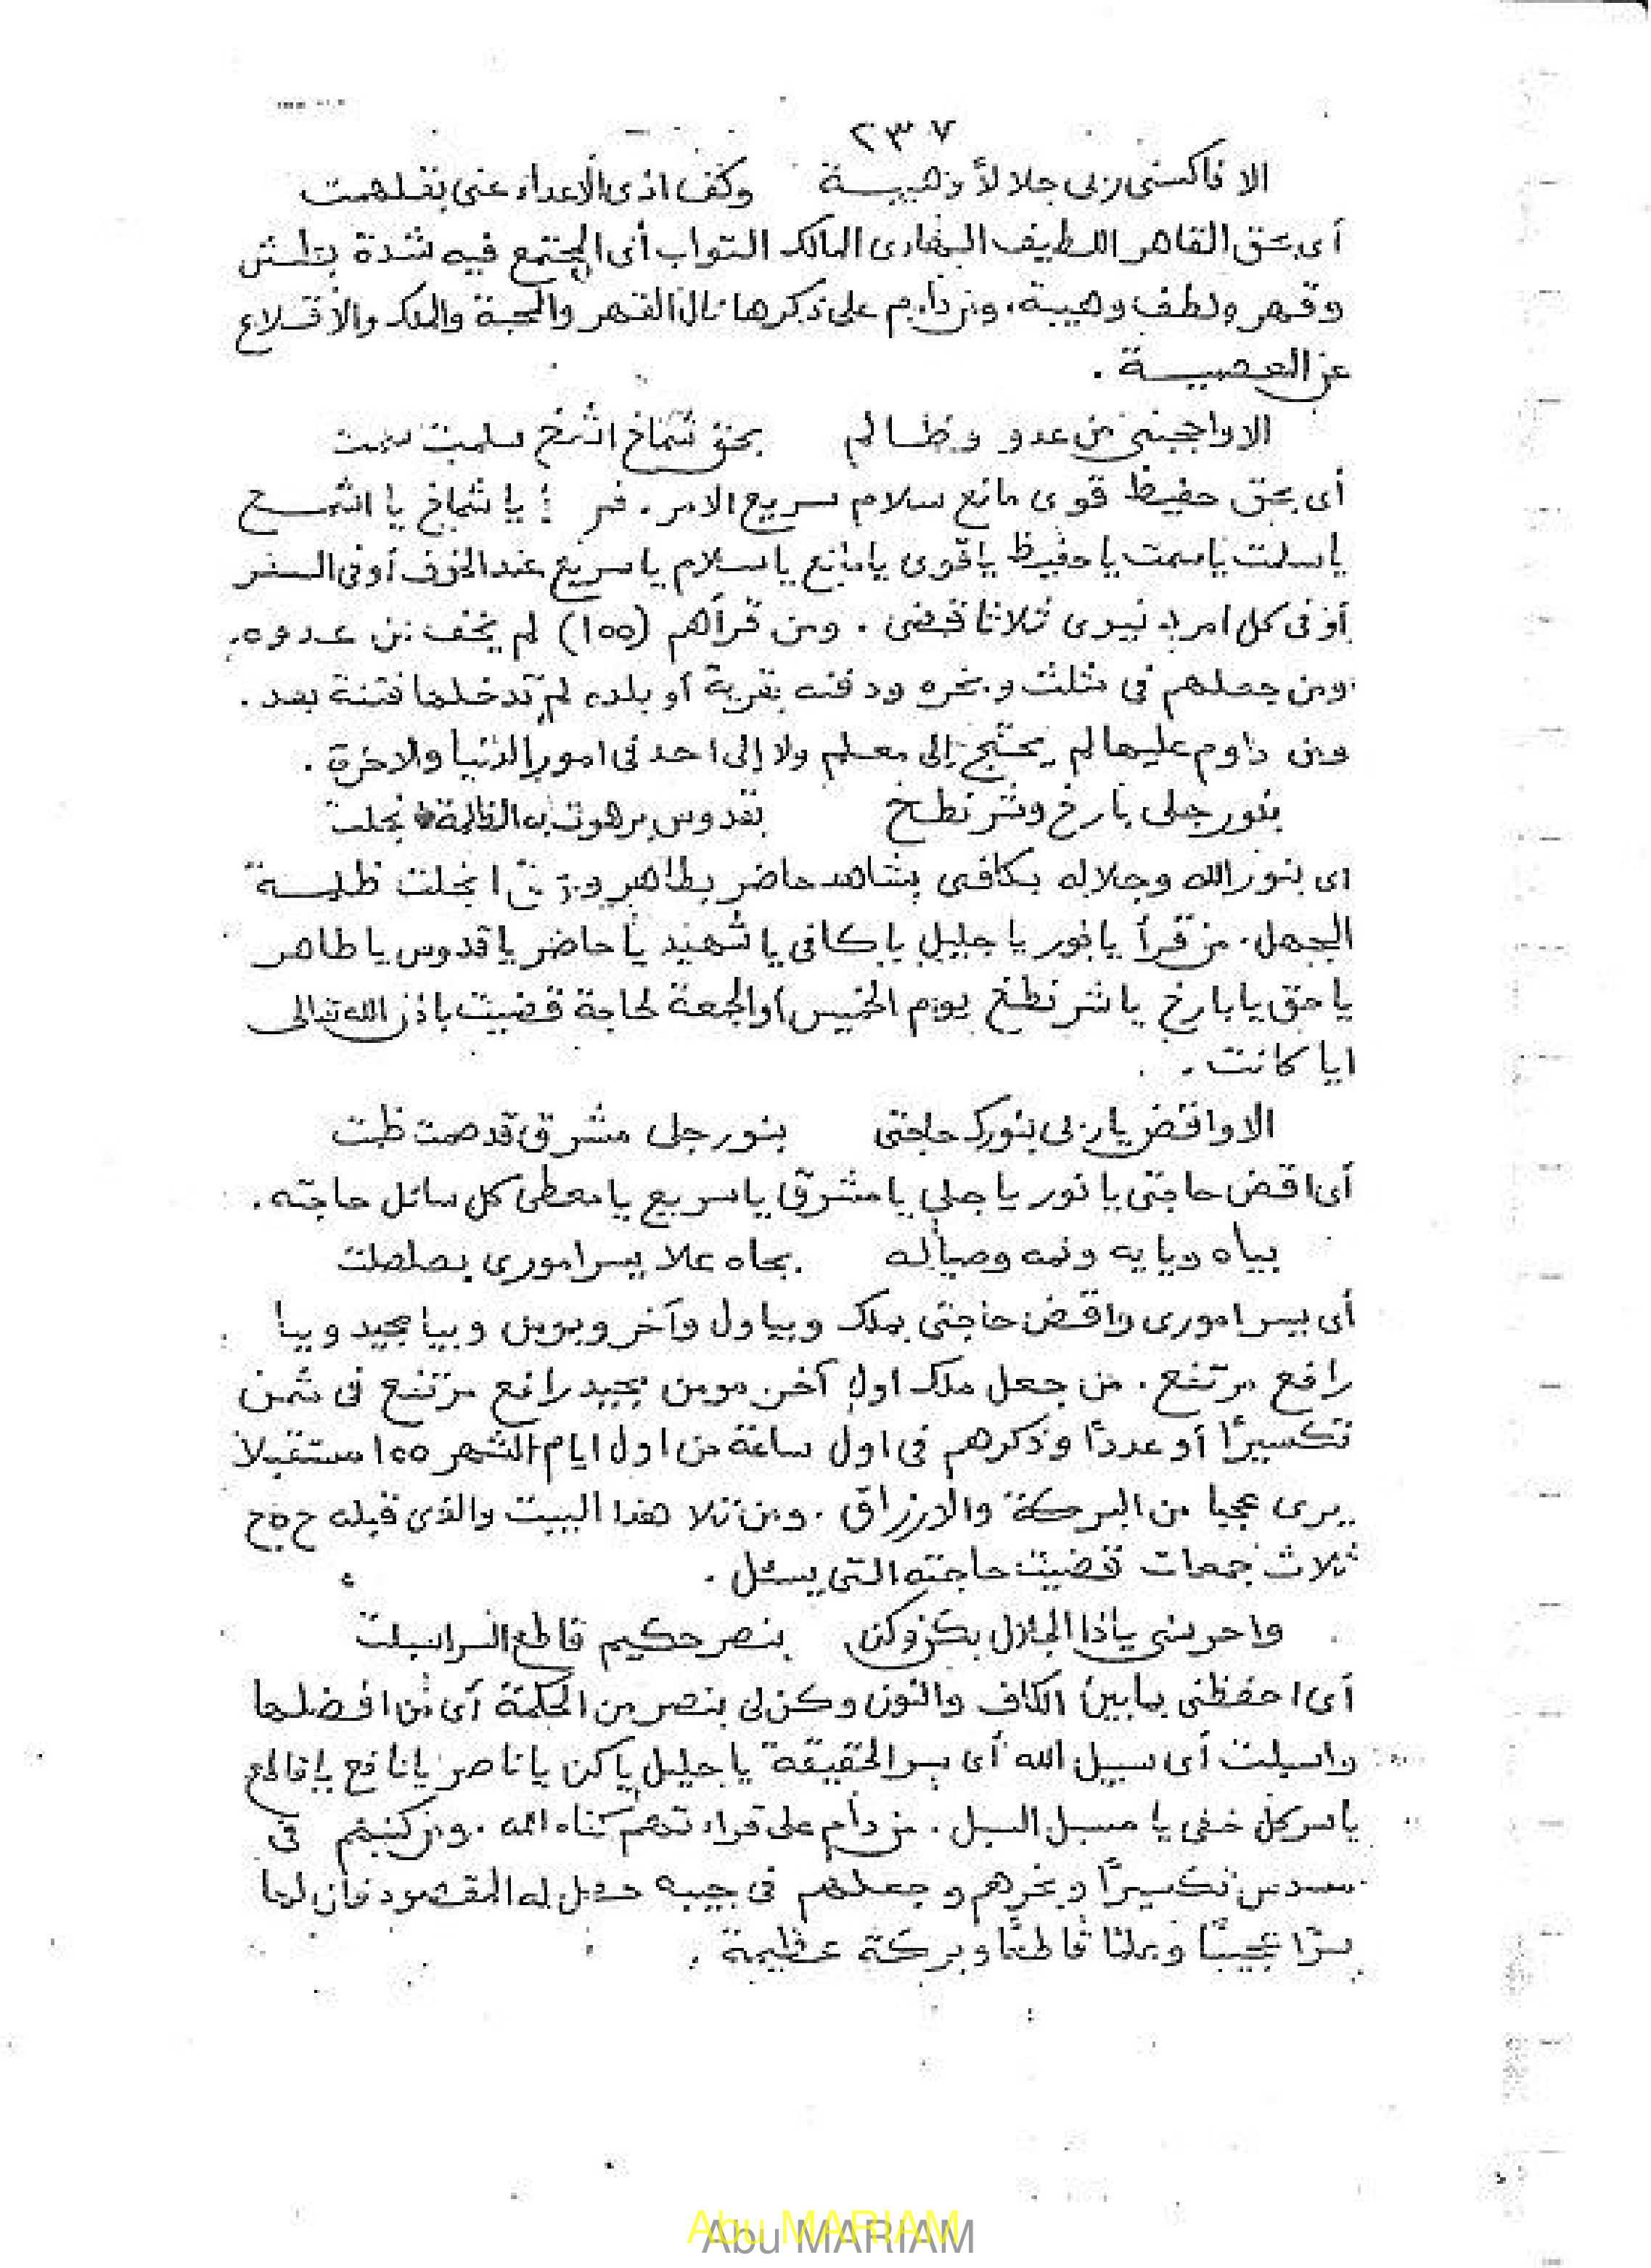 ٢٣٧
الا فاكسنى ربى جلالاً وهيبة وكف اذى الاعداء عنى بغلمهت
أى بحق القاهر اللطيف الهادى المالك التواب أى المجتمع فيه شدة بطش
وقهر ولطف وهيبة، ومن داوم على ذكرها نال القهر والمحبة والملك والاقلاع
عن العصبية .
الا واحجبنى من عدو وظالم بحق شماخ اشمخ سلمت سمت
أى بحق حفيظ قوى مانع سلام سريع الامر . يا شماخ يا اشمخ
يا سلمت يا سمت يا حفيظ يا قوى يا مانع يا سلام يا سريع عند الخوف أو فى السفر
أو فى كل امر ثلاثا قضى . ومن قرأهم (١٥٥) لم يخف من عدوه.
ومن جعلهم فى مثلث وبخره ودفنه بقرية أو بلده لم تدخلها فتنة بعد .
ومن داوم عليها لم يحتج إلى معلم ولا إلى احد فى امور الدنيا والاخرة .
بنور جلى بارخ وشرنطخ بقدوس برهوت به الظلمة انجلت
اى بنور الله وجلاله بكافى بشاهد حاضر بطاهر وبحق انجلت ظلمة
الجهل . من قرأ يا نور يا جليل يا كافى يا شهيد يا حاضر يا قدوس يا طاهر
يا حق يا بارخ يا شرنطخ يوم الخميس أو الجمعة لحاجة قضيت باذن الله تعالى
ايا كانت .
الا واقض يا ربى بنورك حاجتى بنور جلى مشرق قد صمت ظت
أى اقض حاجتى يا نور يا جلى يا مشرق يا سريع يا معطى كل سائل حاجته .
بياه ويايه ونمه وصياله بجاه علا يسر امورى بصلصلت
أى يسر امورى واقض حاجتى بملك وبيا ول وآخر وبومن وبيا مجيد وبيا
رافع مرتفع . من جعل ملك اول آخر مومن مجيد رافع مرتفع فى مثمن
تكسيرًا أو عددًا وذكرهم فى اول ساعة من اول ايام الشهر ١٥٥ مستقبلا
يرى عجبا من البركة والارزاق . ومن تلا هذا البيت والذى قبله
ثلاث جمعات قضيت حاجته التى يسئل .
واحرسنى ياذا الجلال بكن وكن بنصر حكيم قاطع السر اسبلت
أى احفظنى بما بين الكاف والنون وكن لى بنصر من الحكمة أى من افضلها
واسبلت أى سبيل الله أى بسر الحقيقة يا جليل يا كن يا ناصر يا نافع يا قاطع
يا سر كل خفى يا مسبل السبل . من دام على قراءتهم كفاه الله . ومن كتبهم فى
مسدس تكسيرًا وبخرهم وجعلهم فى جيبه حصل له المقصود فان لها
سرًا عجيبًا قاطعًا وبركة عظيمة .
Abu MARIAM